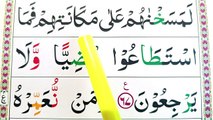 لَمَسَخْنٰهُمْ عَلٰى مَكَانَتِهِمْ فَمَا
اسْتَطَاعُوْا مُضِيًّا وَّلَا
يَرْجِعُوْنَ ۝٦٧ ع وَمَنْ نُّعَمِّرْهُ